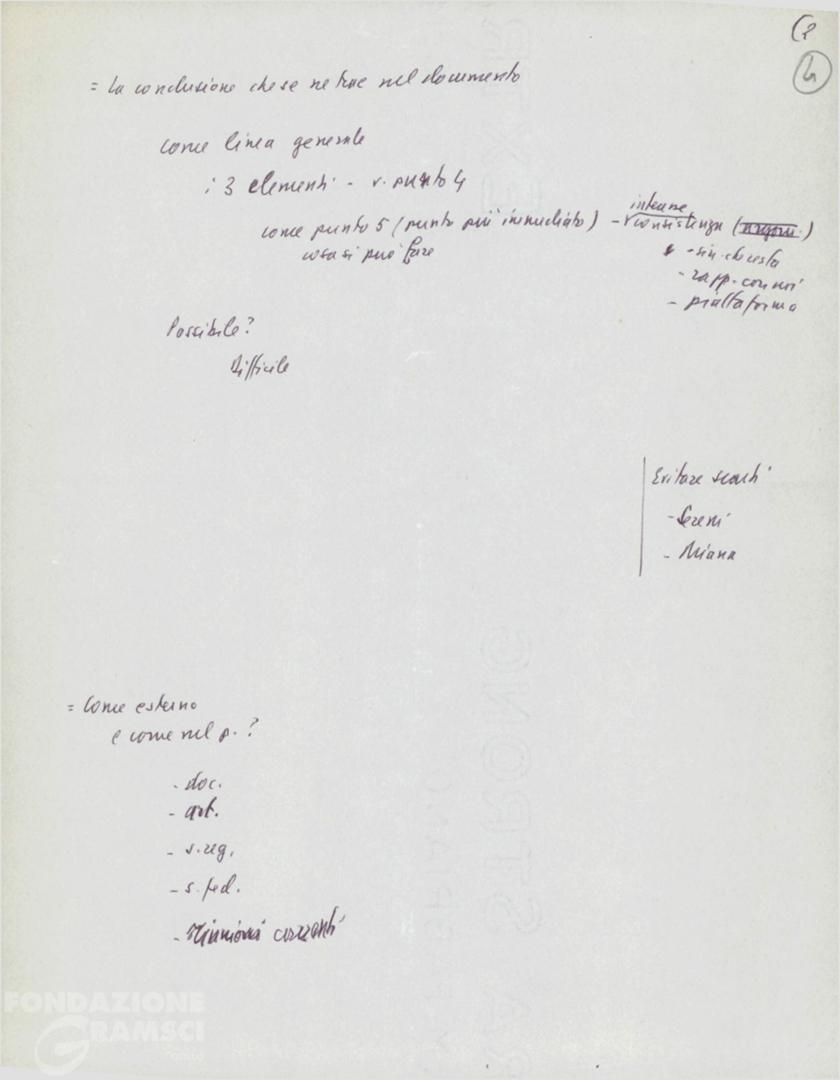 (2
4
= La conclusione che se ne trae nel documento
come linea generale
i 3 elementi - v. punto 4
come punto 5 (punto più immediato) - consistenza
interne
cosa si può fare
- rapp. con noi
- piattaforma
Possibile?
Difficile
Evitare
- Sereni
- Miana
= Come esterno
e come nel p.?
- doc.
- art.
- s. reg.
- s. fed.
- Riunioni
FONDAZIONE
GRAMSCI
EXTRA STRONG
FABRIANO